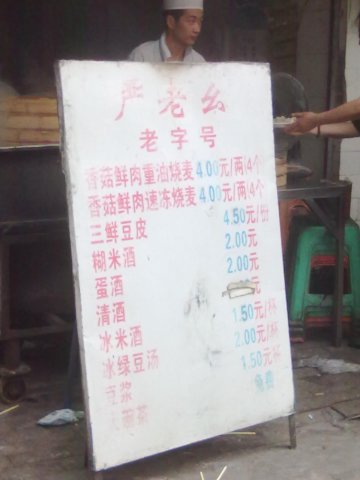 严老幺
老字号
香菇鲜肉重油烧麦 4.00元/两/4个
香菇鲜肉速冻烧麦 4.00元/两/4个
三鲜豆皮 4.50元/份
糊米酒 2.00元
蛋酒 2.00元
清酒 元
冰米酒 1.50元/杯
冰绿豆汤 2.00元/杯
豆浆 1.50元/杯
免费